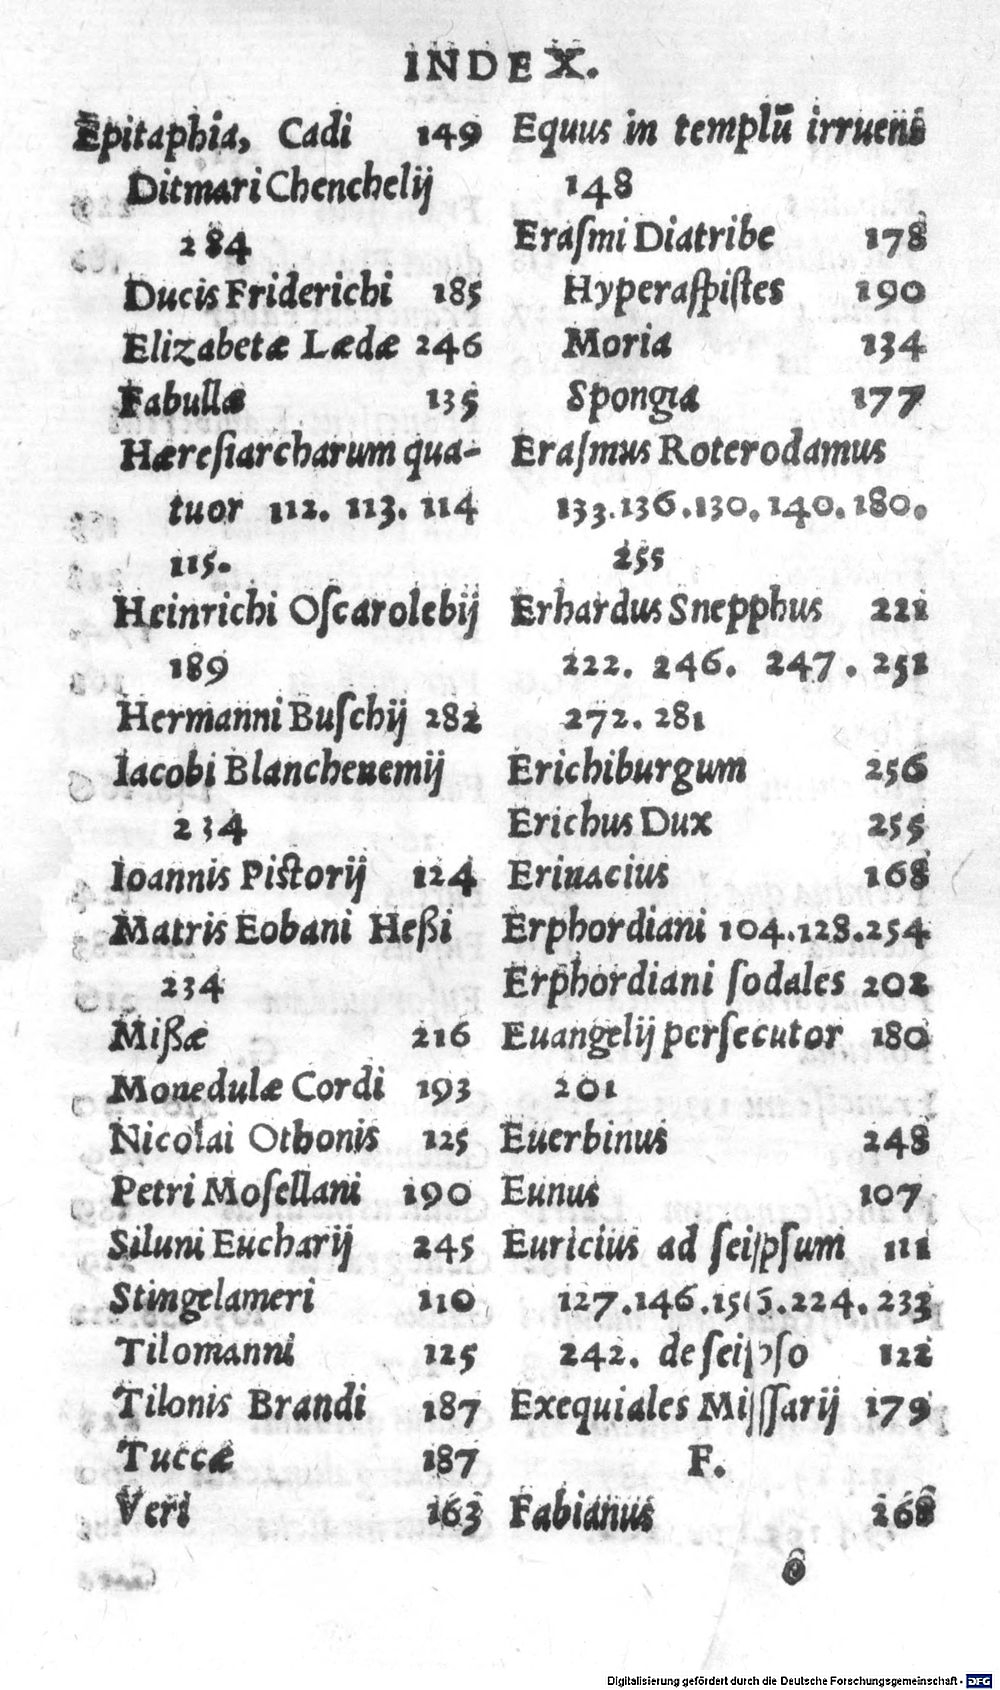 INDEX.
Epitaphia, Cadi 149
Ditmari Chenchelij
284
Ducis Friderichi 185
Elizabetæ Lædæ 246
Fabullæ 135
Hæreſiarcharum qua-
tuor 112. 113. 114
115.
Heinrichi Oſcarolebij
189
Hermanni Buſchij 282
Iacobi Blancheuemij
234
Ioannis Piſtorij 124
Matris Eobani Heßi
234
Mißæ 216
Monedulæ Cordi 193
Nicolai Othonis 125
Petri Moſellani 190
Siluni Eucharij 245
Stingelameri 110
Tilomanni 125
Tilonis Brandi 187
Tuccæ 187
Veri 163
Equus in templū irruens
148
Eraſmi Diatribe 178
Hyperaſpiſtes 190
Moria 134
Spongia 177
Eraſmus Roterodamus
133.136.130.140.180.
255
Erhardus Snepphus 221
222. 246. 247. 251
272. 281
Erichiburgum 256
Erichus Dux 255
Erinacius 168
Erphordiani 104.128.254
Erphordiani ſodales 202
Euangelij perſecutor 180
201
Euerbinus 248
Eunus 107
Euricius ad ſeipſum 111
127.146.156.224. 233
242. de ſeipſo 122
Exequiales Miſſarij 179
F.
Fabianus 268
Digitalisierung gefördert durch die Deutsche Forschungsgemeinschaft - DFG